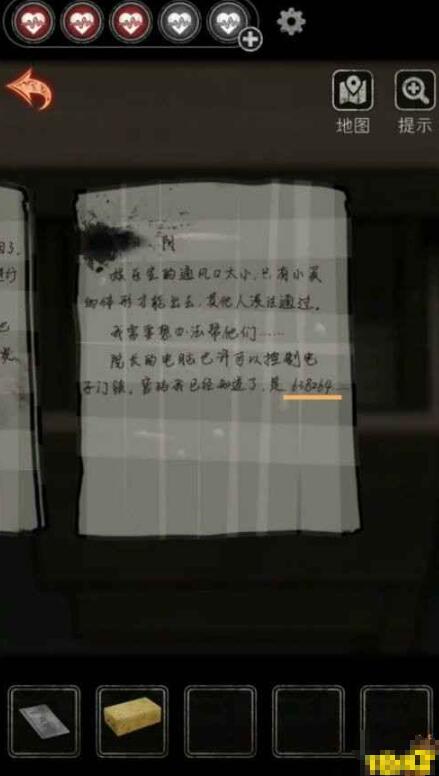 地图
提示
娱乐室的通风口太小,只有小英
的体形才能出去,其他人没法通过。
我需要想办法帮他们……
院长的电脑也许可以控制电
子门锁。密码我已经知道了,是638264